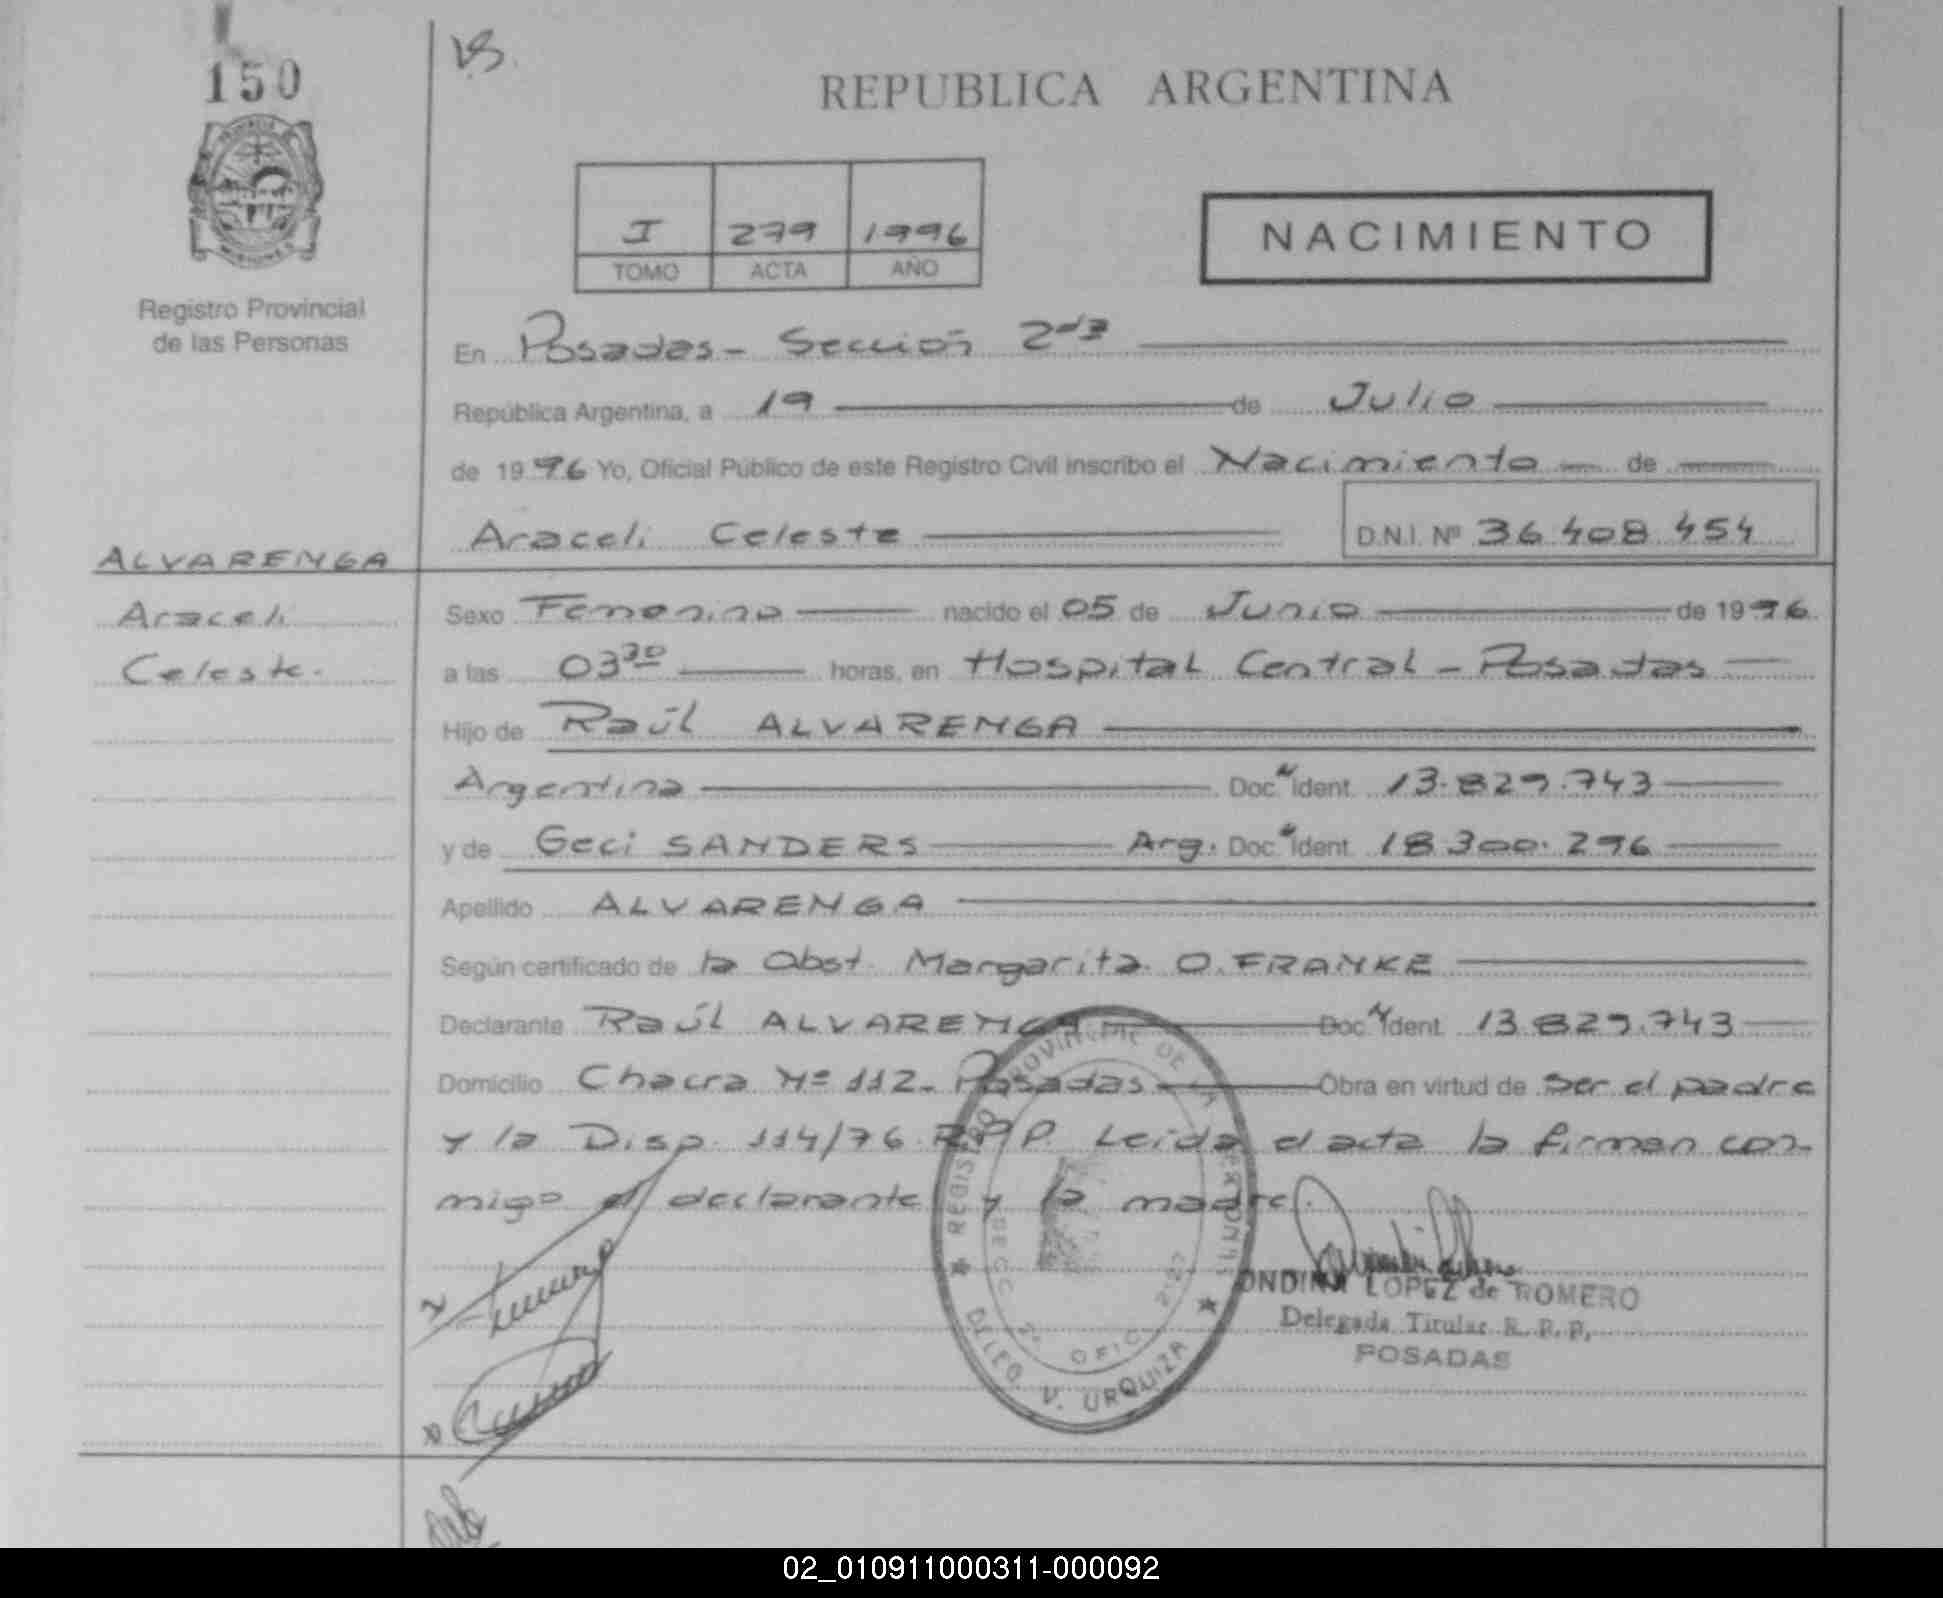 150
VB.
REPUBLICA ARGENTINA
I 279 1996
TOMO ACTA AÑO
NACIMIENTO
Registro Provincial
de las Personas
En Posadas - Sección 2da
República Argentina, a 19 de Julio
de 1996 Yo, Oficial Público de este Registro Civil inscribo el Nacimiento de
Araceli Celeste D.N.I. Nº 36.408.454
ALVARENGA
Araceli
Celeste.
Sexo Femenino nacido el 05 de Junio de 1996
a las 03 30 horas, en Hospital Central - Posadas
Hijo de Raúl ALVARENGA
Argentina Doc. Ident. 13.829.743
y de Geci SANDERS Arg. Doc. Ident. 18.300.296
Apellido ALVARENGA
Según certificado de la Obst. Margarita O. FRANKE
Declarante Raúl ALVARENGA Doc. Ident. 13.829.743
Domicilio Chacra Nº 112 - Posadas Obra en virtud de ser el padre
y la Disp. 114/76 R.P.P. Leida el acta la firman con-
migo el declarante y la madre.
REGISTRO PROVINCIAL DE LAS PERSONAS
SECC 2ª OFIC 2127
DELEG V. URQUIZA
ONDINA LOPEZ de ROMERO
Delegada Titular R. P. P.
POSADAS
02_010911000311-000092